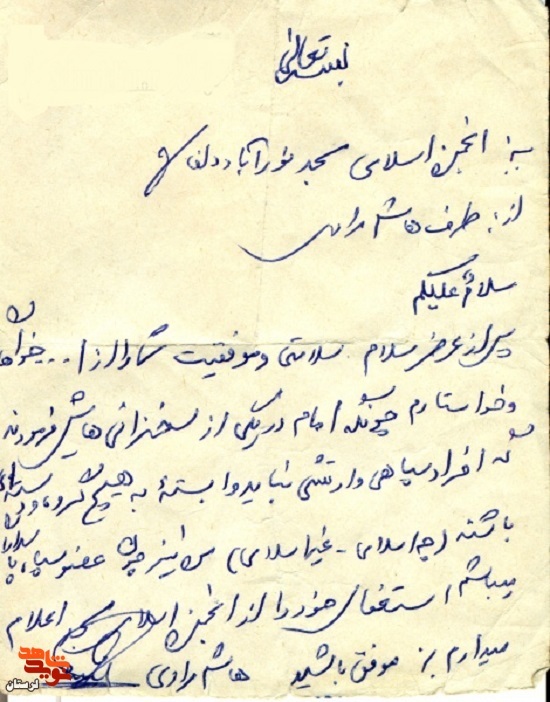 بسمه تعالی
به: انجمن اسلامی مسجد نورآباد دلفان
از: طرف هاشم مرادی
سلام علیکم
پس از عرض سلام سلامتی و موفقیت شما را از ا... خواهان
و خواستارم چونکه امام در یکی از سخنرانی هایش فرمودند
که افراد سپاهی و ارتشی نباید وابسته به هیچ گروه و
باشند (چه اسلامی - غیر اسلامی) من نیز چون عضو سپاه
میباشم استعفای خود را از انجمن اسلامی اعلام
میدارم موفق باشید هاشم مرادی
نوید شاهد
لرستان